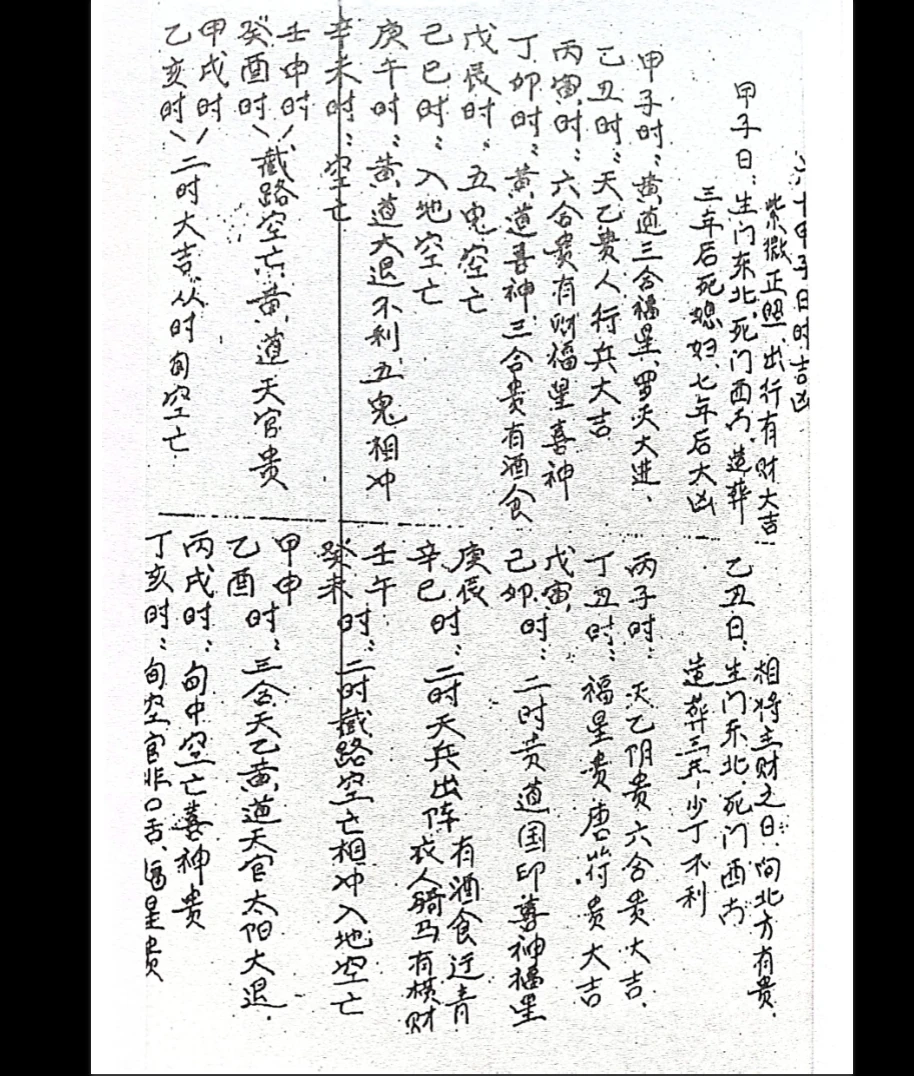 六十甲子日时吉凶
紫微正照、出行有财大吉
甲子日：生门东北、死门西南、造葬
三年后死媳妇、七年后大凶
甲子时：黄道三合福星、罗天大进、
乙丑时：天乙贵人行兵大吉
丙寅时：六合贵有财福星喜神
丁卯时：黄道喜神三合贵有酒食
戊辰时：五鬼空亡
己巳时：入地空亡
庚午时：黄道大退不利五鬼相冲
辛未时：空亡
壬申时
癸酉时 截路空亡黄道天官贵
甲戌时
乙亥时 二时大吉、从时旬空亡
相将主财之日、向北方有贵、
乙丑日：生门东北、死门西南
造葬三年少丁不利
丙子时：天乙阴贵六合贵大吉、
丁丑时：福星贵唐符贵大吉
戊寅
己卯 时：二时黄道国印喜神福星
庚辰
辛巳 时：二时天兵出阵 有酒食迎青
衣人骑马有横财
壬午
癸未 时：二时截路空亡相冲入地空亡
甲申
乙酉 时：三合天乙黄道天官太阳大退、
丙戌时：旬中空亡喜神贵
丁亥时：旬空官非口舌、福星贵